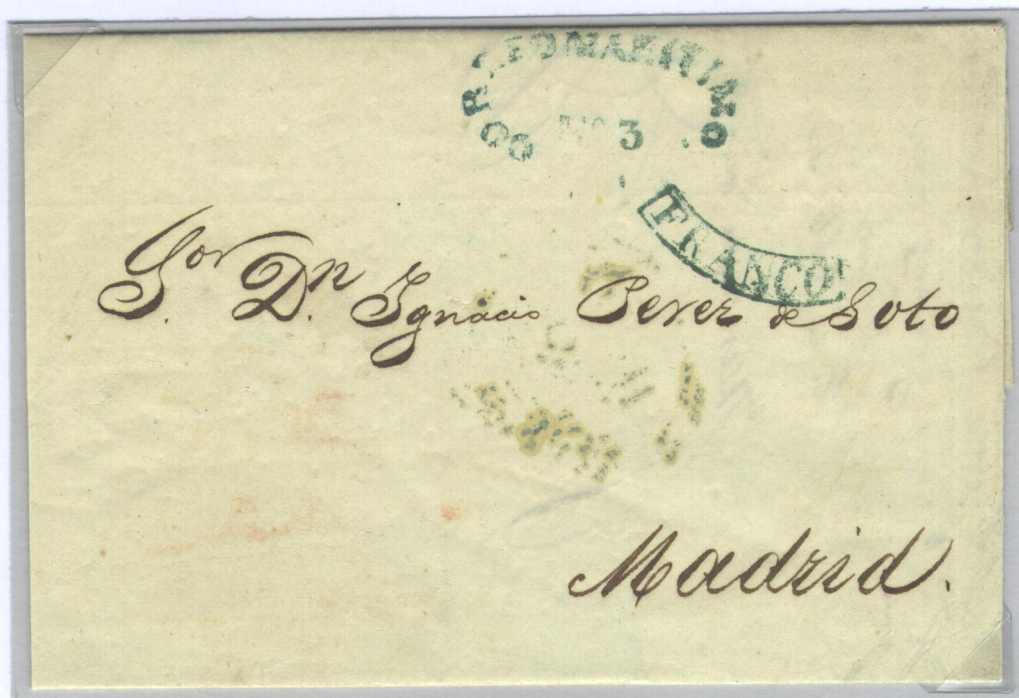 CORREO MARITIMO
Nº 3
FRANCO
Sor. Dn. Ignacio Perez de Soto
Madrid.